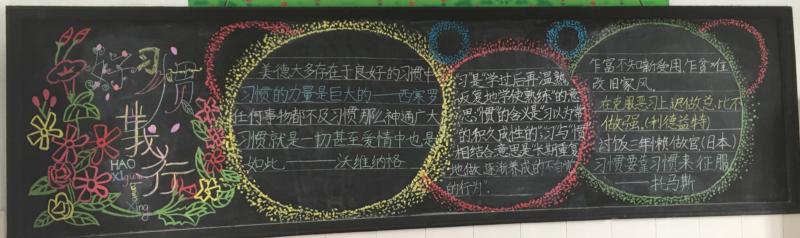 好习惯
我行
HAO
Xi guan
wo
xing
美德大多存在于良好的习惯中
习惯的力量是巨大的——西塞罗
任何事物都不及习惯那么神通广大
习惯就是一切甚至爱情中也是
如此———沃维纳格
习是“学过后再温熟
反复地学使熟练”的意
思“惯”的含义是“习以为常
的积久成性的”“习”与“惯”
相结合意思是“长期重复
地做,逐渐养成的不自觉
的行为”。
乍富不知新受用,乍贫难
改旧家风。
在克服恶习上,迟做总比不
做强。(利德益特)
讨饭三年懒做官(日本)
习惯要靠习惯来征服
———托马斯